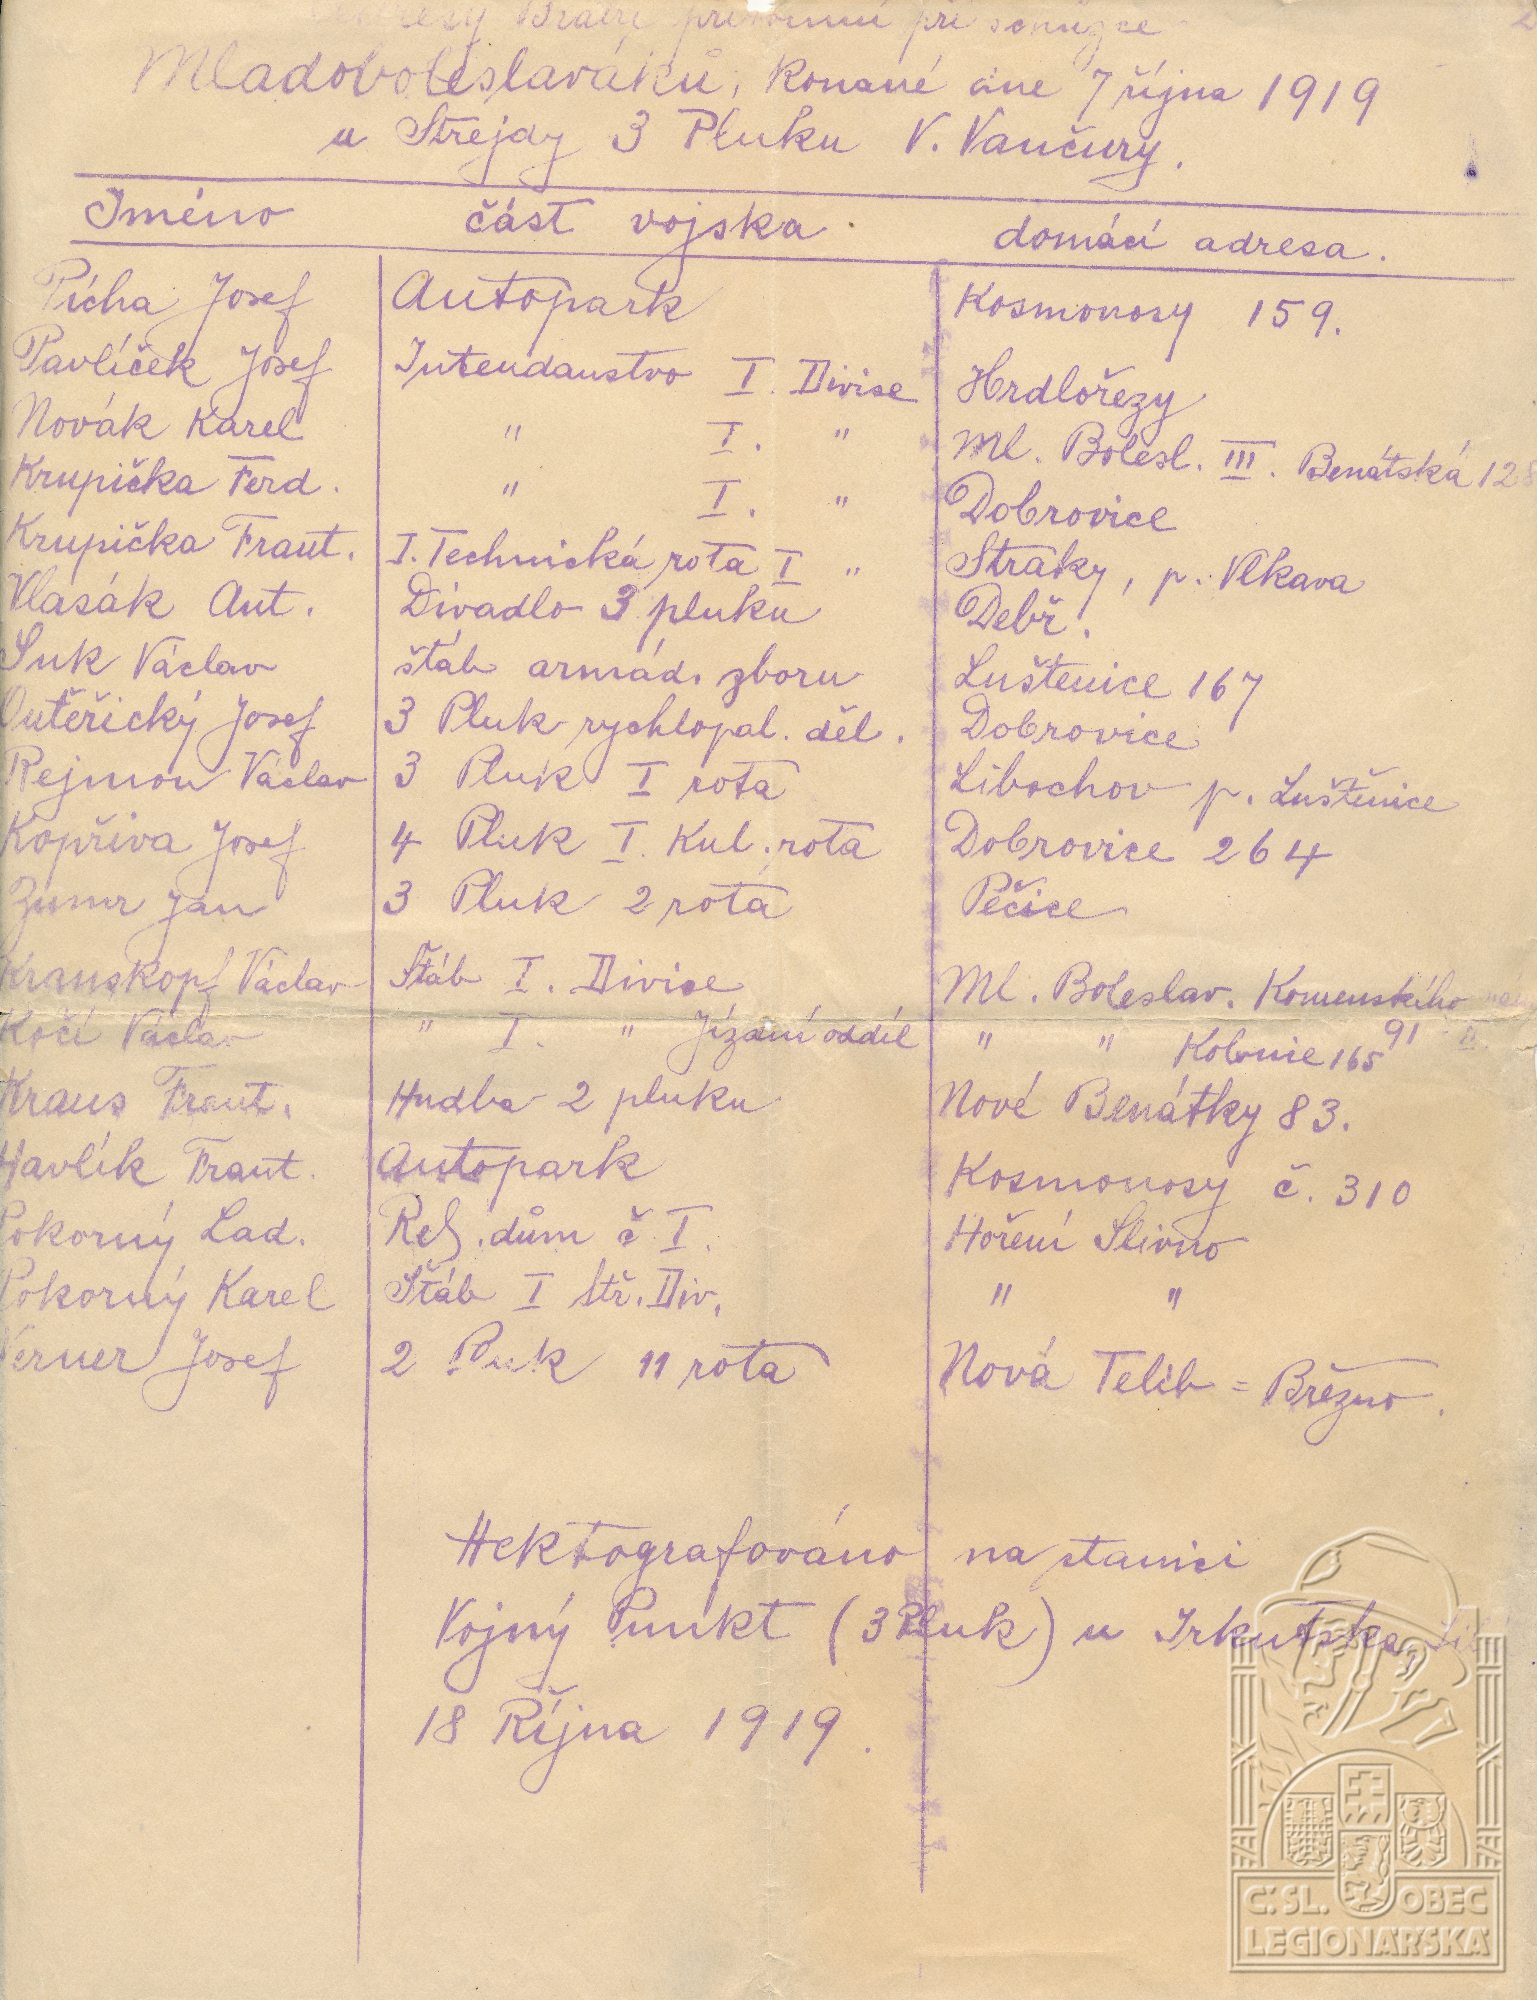 Adresy Bratří přítomní při schůzce
Mladoboleslaváků, konané dne 7 října 1919
u Strejdy 3 Pluku V. Vančury.
Jméno část vojska domácí adresa.
Pícha Josef Autopark Kosmonosy 159.
Pavlíček Josef Intendanstvo I. Divise Hrdlořezy
Novák Karel " I. " Ml. Bolesl. III. Benátská 128
Krupička Ferd. " I. " Dobrovice
Krupička Frant. I. Technická rota I " Straky, p. Vlkava
Vlasák Ant. Divadlo 3 pluku Debř.
Suk Václav štáb armád. zboru Luštenice 167
Outěřický Josef 3 Pluk rychlopal. děl. Dobrovice
Rejmon Václav 3 Pluk I rota Libochov p. Luštěnice
Kopřiva Josef 4 Pluk I. Kul. rota Dobrovice 264
Zumr Jan 3 Pluk 2 rota Pečice
Krauskopf Václav Štáb I. Divise Ml. Boleslav. Komenského
91 II.
Kočí Václav " I. " Jízdní oddíl " " Kolonie 165
Kraus Frant. Hudba 2 pluku Nové Benátky 83.
Havlík Frant. Autopark Kosmonosy č. 310
Pokorný Lad. Rel. dům č I. Hoření Slivno
Pokorný Karel Štáb I Stř. Div. " "
Verner Josef 2 Pluk 11 rota Nová Telib = Březno.
Hektografováno na stanici
Vojný Punkt (3 Pluk) u Irkutska,
18 Října 1919.
Č. SL. OBEC
LEGIONÁŘSKÁ